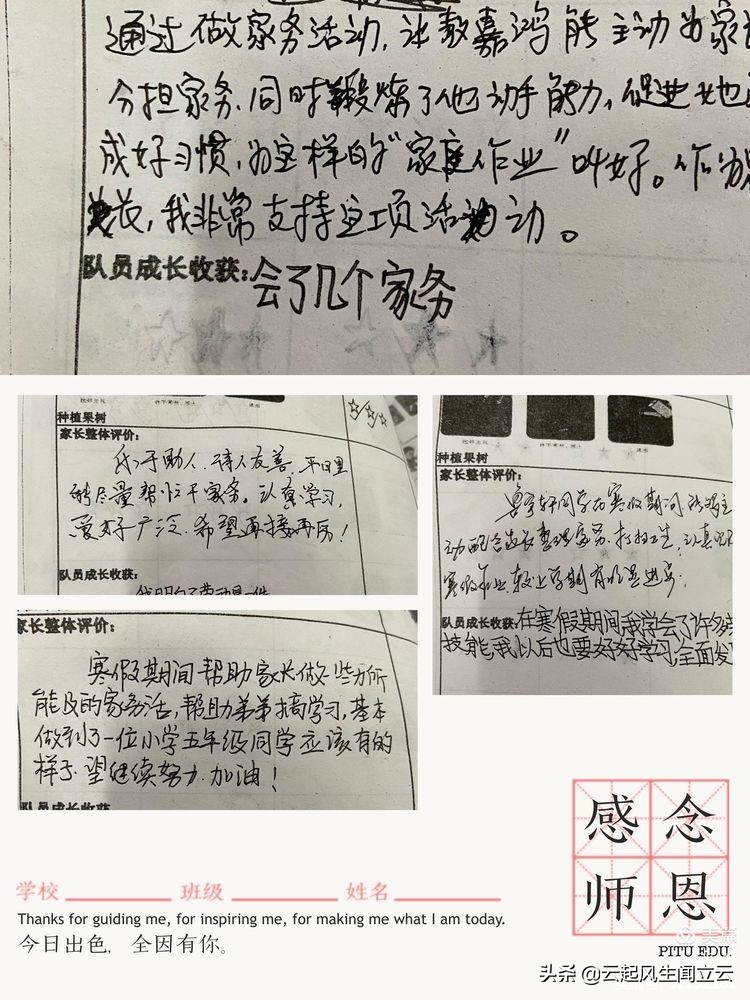 通过做家务活动,让敖嘉鸿能主动为家
分担家务.同时锻炼了他动手能力,促进他
成好习惯,为这样的“家庭作业”叫好。作为
长,我非常支持这项活动。
队员成长收获:会了几个家务
种植果树
家长整体评价:
乐于助人.待人友善.平日里
能尽量帮忙干家务。认真学习,
爱好广泛.希望再接再厉!
队员成长收获:
家长整体评价:
寒假期间帮助家长做一些力所
能及的家务活,帮助弟弟搞学习,基本
做到了一位小学五年级同学应该有的
样子.望继续努力.加油!
队员成长收获
种植果树
家长整体评价:
同学在寒假期间能够主
动配合家长整理家务.打扫卫生,认真完
寒假作业较上学期有明显进步.
队员成长收获:在寒假期间,我学会了许多
技能,我以后也要好好学习,全面发
感念
师恩
学校 班级 姓名
Thanks for guiding me, for inspiring me, for making me what I am today.
今日出色, 全因有你。
美篇
PITU EDU.
头条 @云起风生闻立云